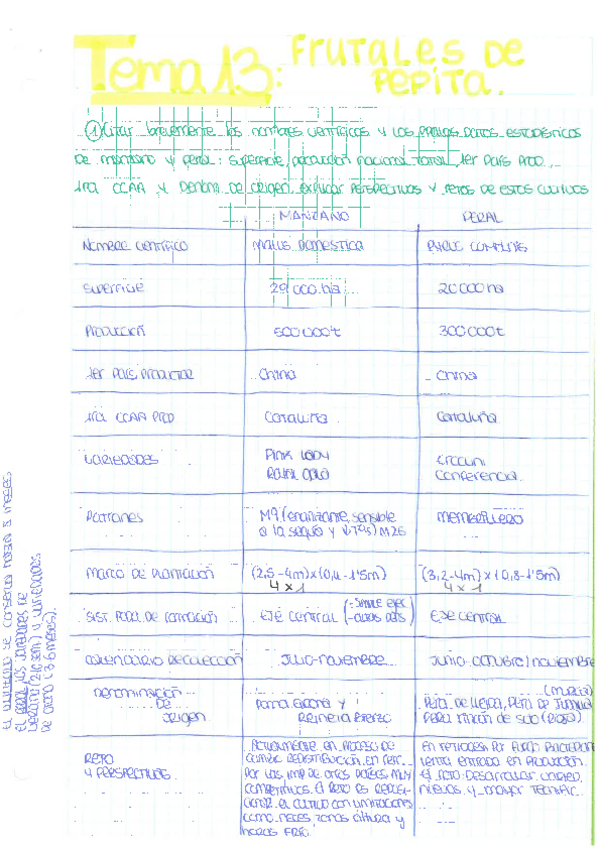 Tema 13: FRUTALES DE PEPITA.
① Citar brevemente los nombres científicos y los ppales datos estadísticos
de manzano y peral: superficie, producción nacional total, 1er país prod.,
1ra CCAA y Denom. de origen, explicar perspectivas y retos de estos cultivos
MANZANO PERAL
Nombre científico Malus domestica Pyrus communis
Superficie 29000 ha 20000 ha
Producción 500000t 300000t
1er País productor China China
1ra CCAA PROD Cataluña Cataluña
Variedades Pink Lady
Royal Gala
Conferencia.
Patrones M9 (enanizante, sensible
a la sequía y M26 Membrillero
Marco de Plantación (2,5-4m) x (0,4-1'5m) (3,2-4m) x (0,8-1'5m)
4 x 1 4 x 1
Sist. de formación EJE CENTRAL EJE CENTRAL
Calendario recolección Julio-noviembre Junio-octubre/noviembre
Denominación
de
origen
Poma Girona y
Reineta Bierzo
(Murcia)
Pera de Lleida, Pera de Jumilla
Pera Rincón de Soto (Rioja)
RETO
y perspectivas.
Actualmente en proceso de
por las imp de otros países muy
competitivos. El reto es
el cultivo con limitaciones
como neces. zonas altura y
horas frío.
En retroceso por
entrado en producción.
El reto: Desarrollar
nuevas y mayor tecnific.
El manzano se conserva hasta 8 meses.
El peral, las variedades de
verano y variedades
de otoño (3-6 meses).